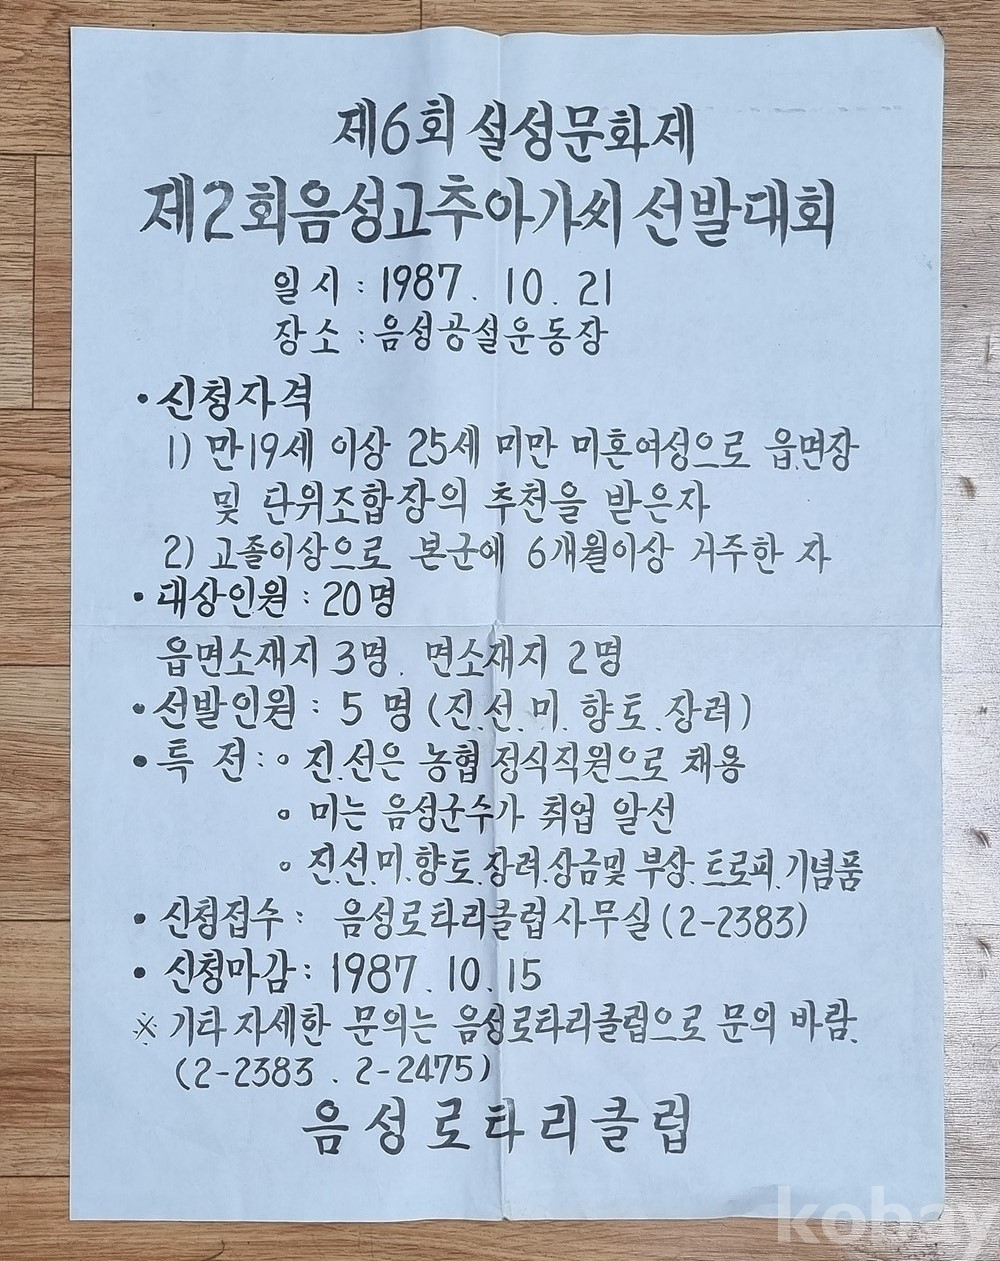 제6회 설성문화제
제2회음성고추아가씨 선발대회
일 시 : 1987. 10. 21
장 소 : 음성공설운동장
• 신청자격
1) 만19세 이상 25세 미만 미혼여성으로 읍.면장
및 단위조합장의 추천을 받은자
2) 고졸이상으로 본군에 6개월이상 거주한 자
• 대상인원 : 20명
읍면소재지 3명. 면소재지 2명
• 선발인원 : 5명 (진.선.미.향토.장려)
• 특 전 : ○ 진.선은 농협 정식직원으로 채용
○ 미는 음성군수가 취업 알선
○ 진.선.미.향토.장려.상금및 부상.트로피.기념품
• 신청접수 : 음성로타리클럽사무실 (2-2383)
• 신청마감 : 1987. 10. 15
※ 기타 자세한 문의는 음성로타리클럽으로 문의 바람.
(2-2383 . 2-2475)
음성로타리클럽
kobay